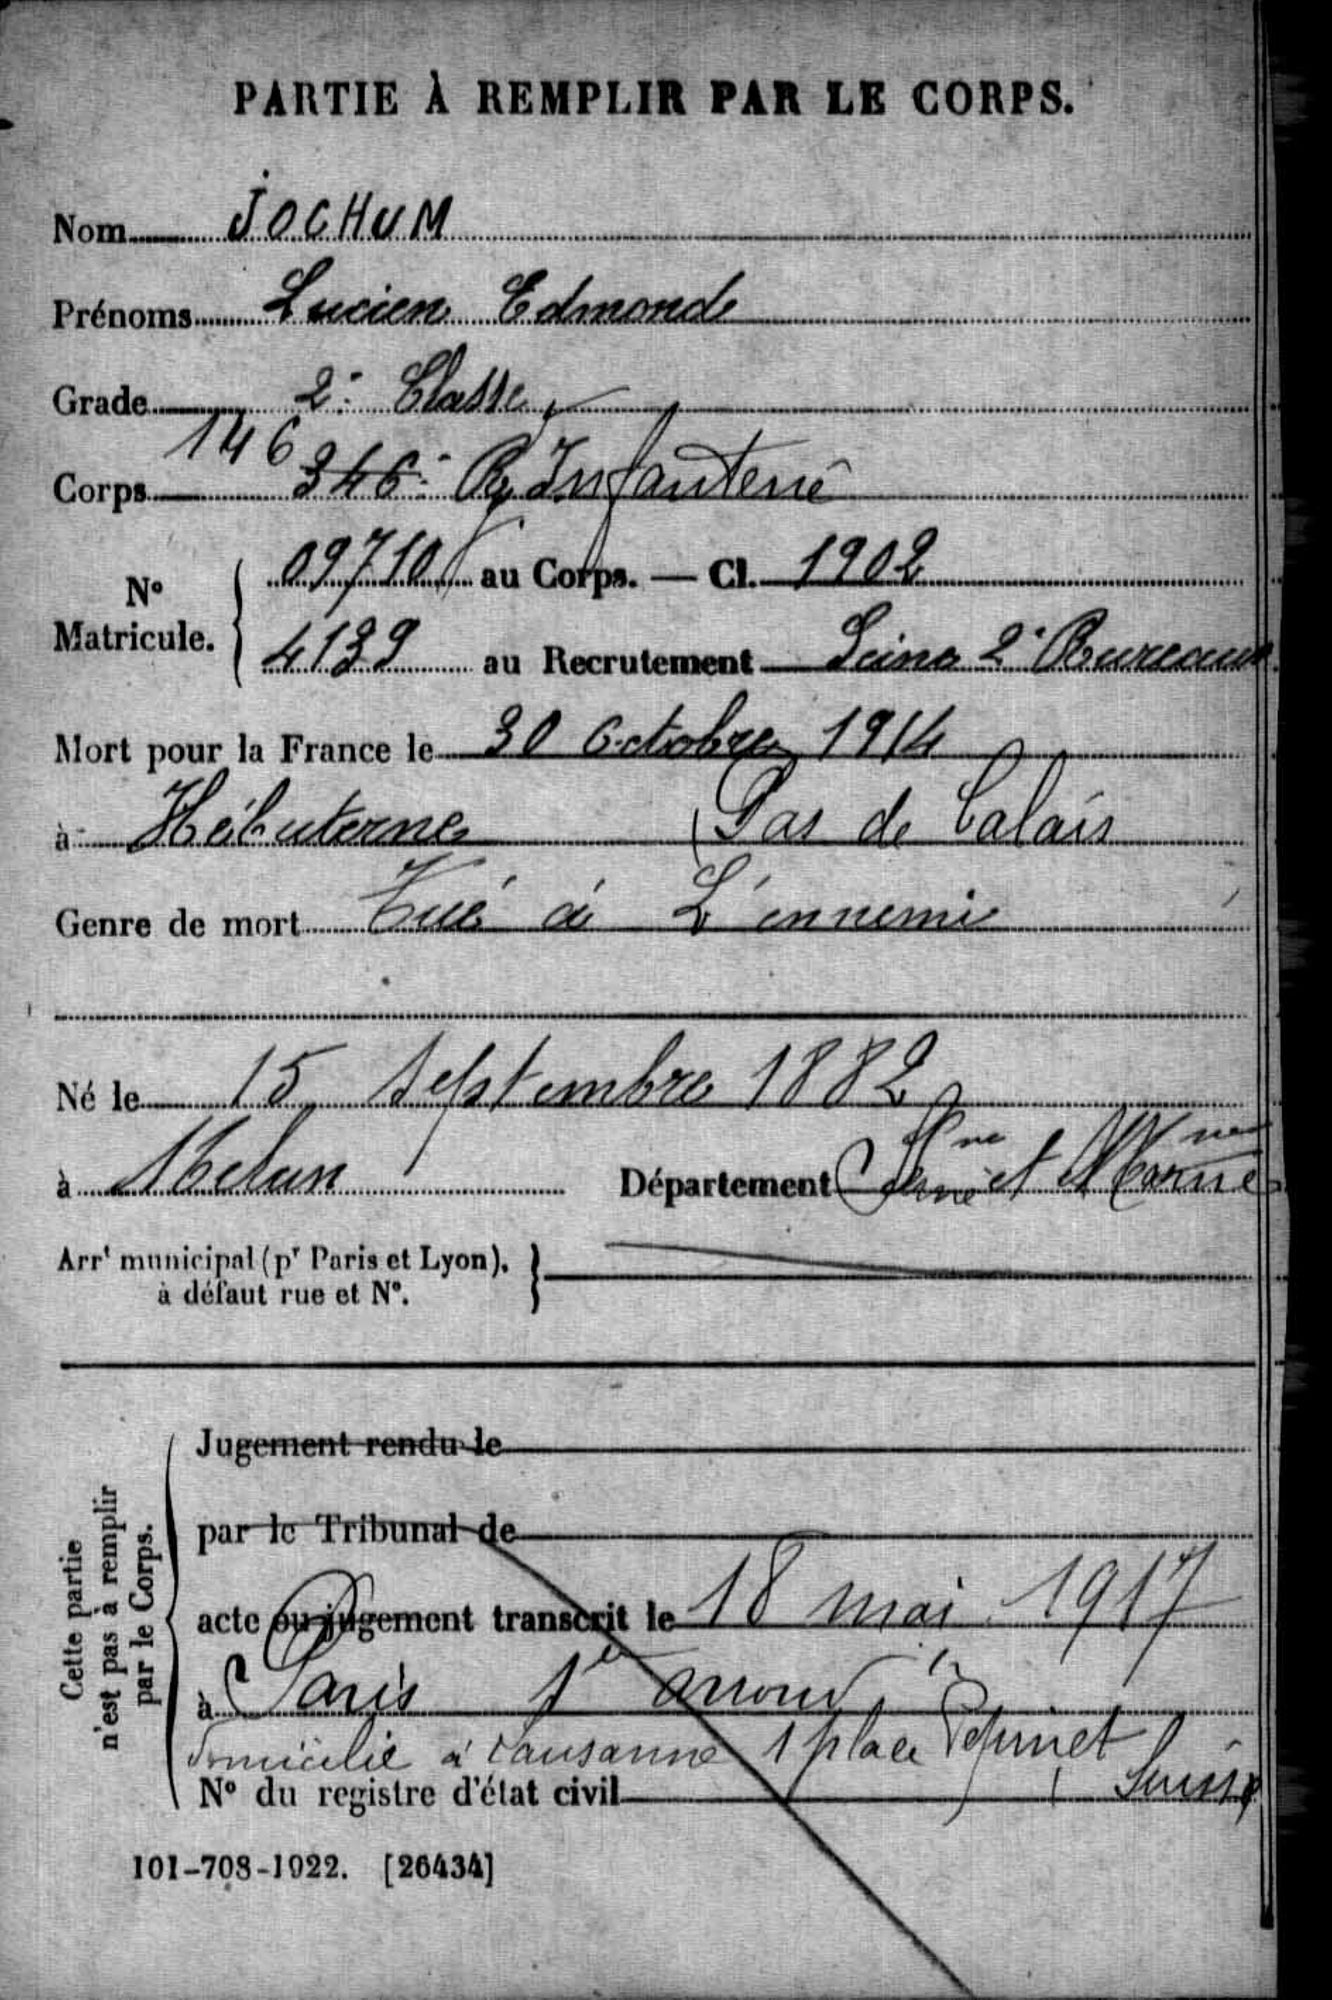 PARTIE À REMPLIR PAR LE CORPS.
Nom JOCHUM
Prénoms Lucien Edmonde
Grade 2e Classe
146
Corps 346e Rg Infanterie
No Matricule. 09710 au Corps. — Cl. 1902
4139 au Recrutement Seine 2e Bureau
Mort pour la France le 30 Octobre 1914
à Hébuterne (Pas de Calais
Genre de mort Tué à L'ennemie
Né le 15 Septembre 1882
à Melun Département Seine et Marne
Arrt municipal (pr Paris et Lyon),
à défaut rue et No.
Cette partie
n'est pas à remplir
par le Corps.
Jugement rendu le
par le Tribunal de
acte ou jugement transcrit le 18 mai 1917
à Paris 1er arrond
domicilié à Lausanne 1 place Pépinet
No du registre d'état civil Suisse
101-708-1922. [26434]